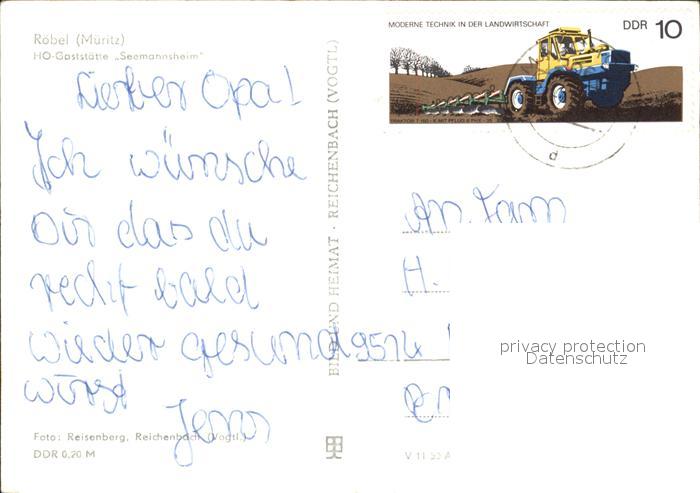 Röbel (Müritz)
HO-Gaststätte „Seemannsheim"
Lieber Opa!
Ich wünsche
dir das du
recht bald
wieder gesund
würst
Jens
Foto: Reisenberg, Reichenbach (Vogtl.)
DDR 0,20 M
BILD UND HEIMAT · REICHENBACH (VOGTL)
MODERNE TECHNIK IN DER LANDWIRTSCHAFT
DDR 10
d
An. Fam
H.
9514
V 11 50 A
privacy protection
Datenschutz